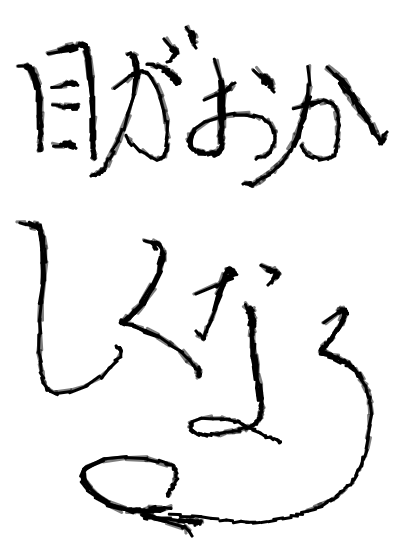 目がおか
しくなる